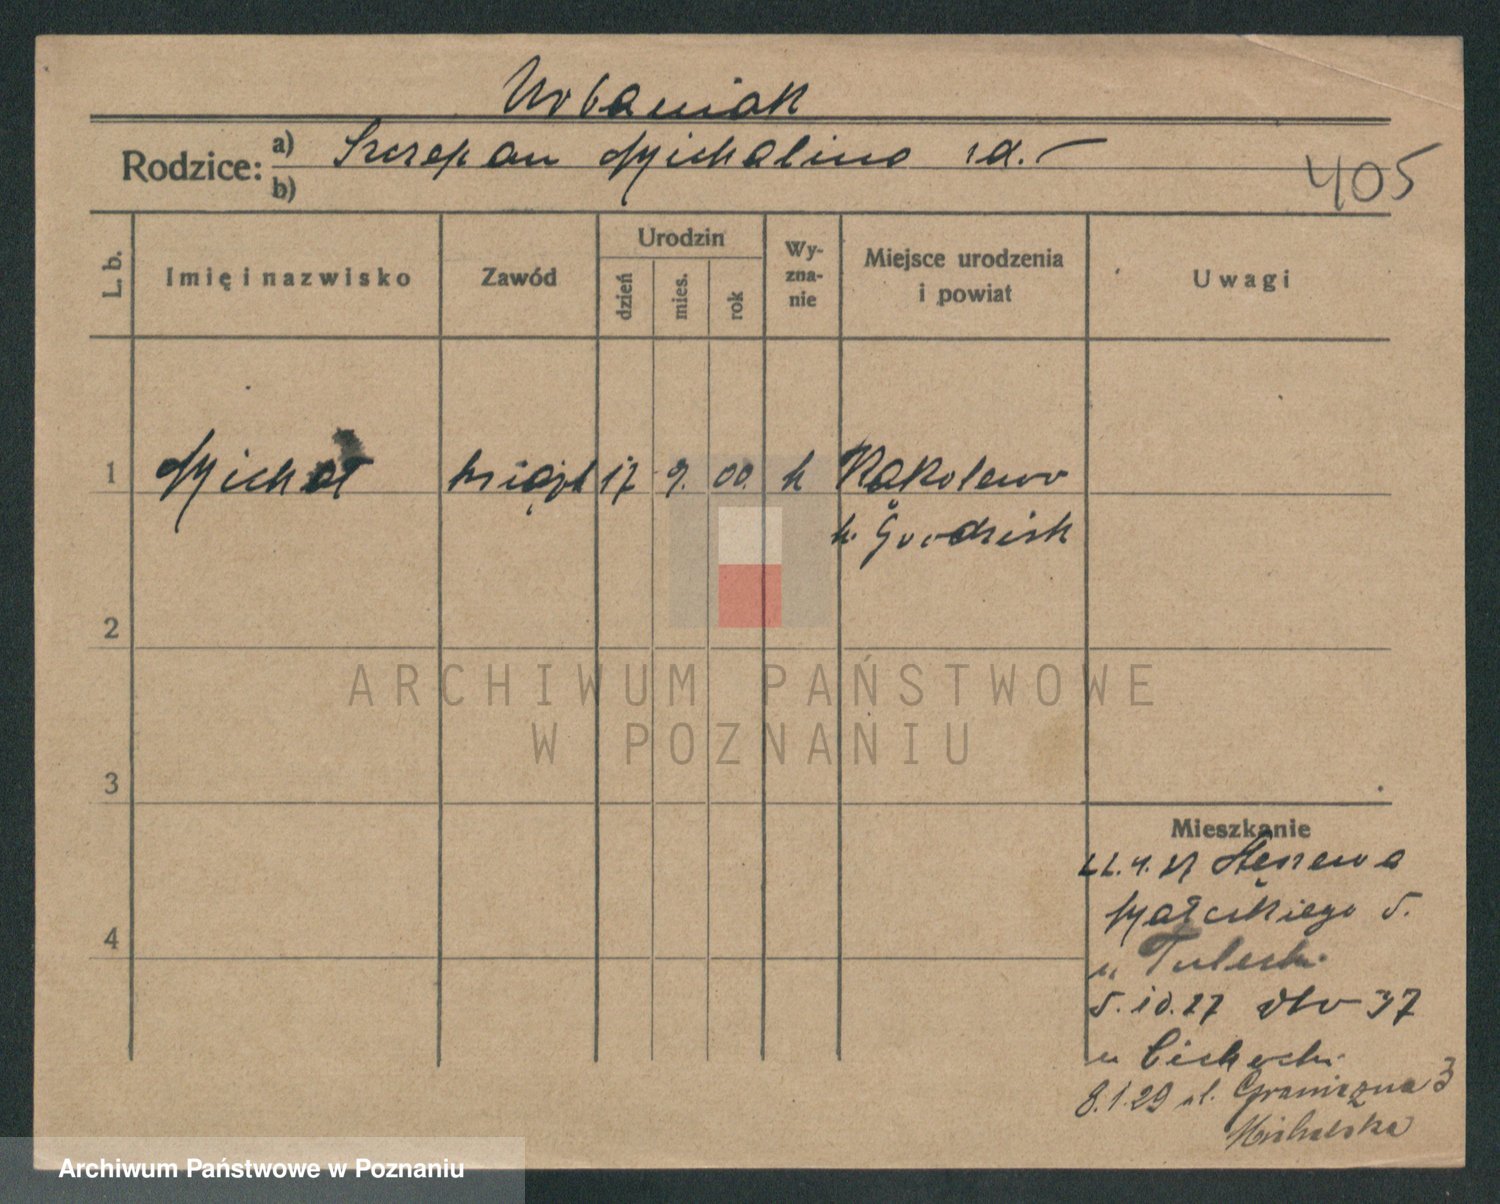 Urbaniak
Rodzice: a) Szczepan Michalina rd. –
b)
405
L. b.
Imię i nazwisko
Zawód
Urodzin
dzień
mies.
rok
Wy-
zna-
nie
Miejsce urodzenia
i powiat
Uwagi
1 Michał książk 17 9. 00. k Rakolewo
k. Grodzisk
2
3
4
Mieszkanie
22.4.27
Małeckiego 5.
u
5.10.27 dto 37
u Cichocki
8.1.29 ul. Graniczna 3
Michalska
ARCHIWUM PAŃSTWOWE
W POZNANIU
Archiwum Państwowe w Poznaniu